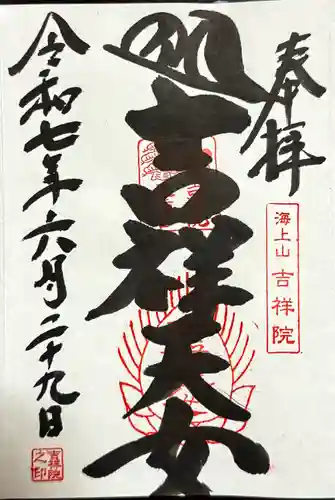 奉拝
海上山 吉祥院
吉祥天女
令和七年六月二十九日
吉祥院之印